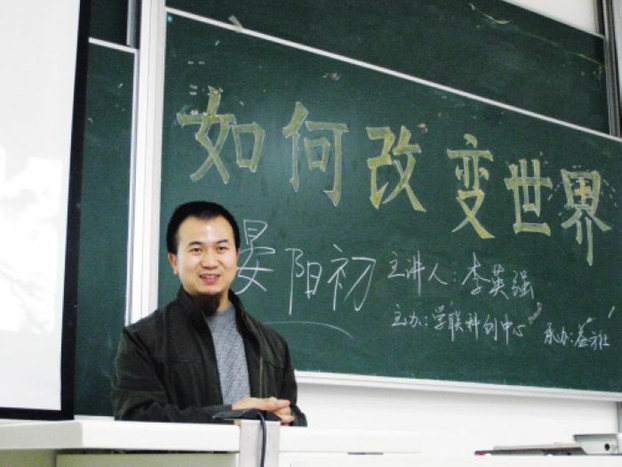 如何改变世界
晏阳初
主讲人：李英强
主办：学联科创中心 承办：益社